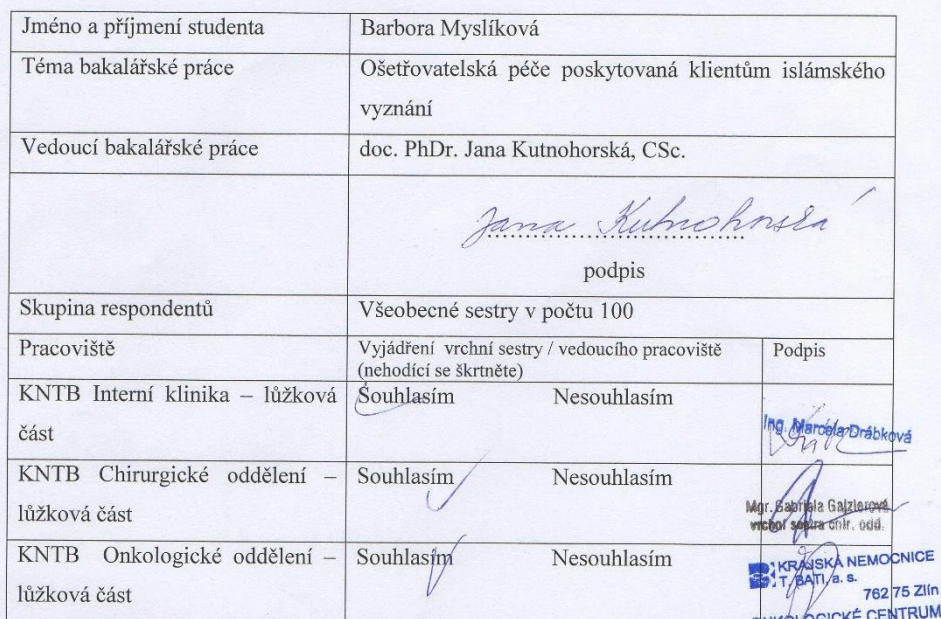 Jméno a příjmení studenta
Barbora Myslíková
Téma bakalářské práce
Ošetřovatelská péče poskytovaná klientům islámského
vyznání
Vedoucí bakalářské práce
doc. PhDr. Jana Kutnohorská, CSc.
Jana Kutnohorská
podpis
Skupina respondentů
Všeobecné sestry v počtu 100
Pracoviště
Vyjádření vrchní sestry / vedoucího pracoviště
(nehodící se škrtněte)
Podpis
KNTB Interní klinika – lůžková
část
Souhlasím Nesouhlasím
Ing. Marcela Drábková
KNTB Chirurgické oddělení –
lůžková část
Souhlasím Nesouhlasím
Mgr. Gabriela
vrchní sestra chir. odd.
KNTB Onkologické oddělení –
lůžková část
Souhlasím Nesouhlasím
KRAJSKÁ NEMOCNICE
T. BATI, a. s.
762 75 Zlín
ONKOLOGICKÉ CENTRUM